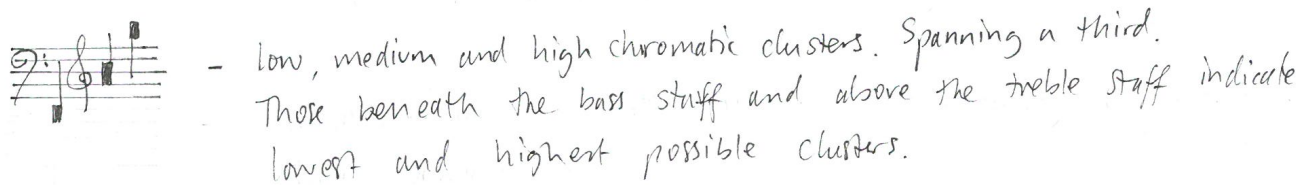 - low, medium and high chromatic clusters. Spanning a third.
Those beneath the bass staff and above the treble staff indicate
lowest and highest possible clusters.